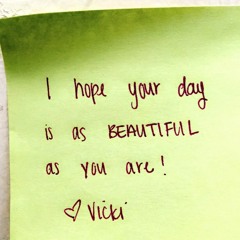 I hope your day
is as BEAUTIFUL
as you are!
♡ Vicki